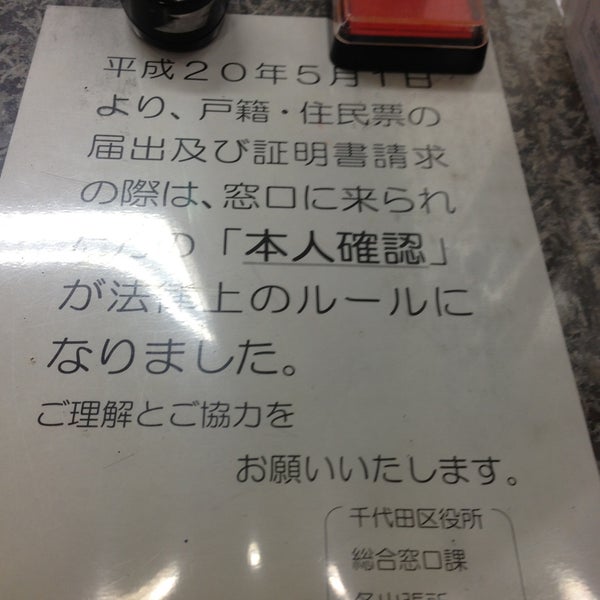 平成20年5月1日
より、戸籍・住民票の
届出及び証明書請求
の際は、窓口に来られ
たかたの「本人確認」
が法律上のルールに
なりました。
ご理解とご協力を
お願いいたします。
千代田区役所
総合窓口課
各出張所